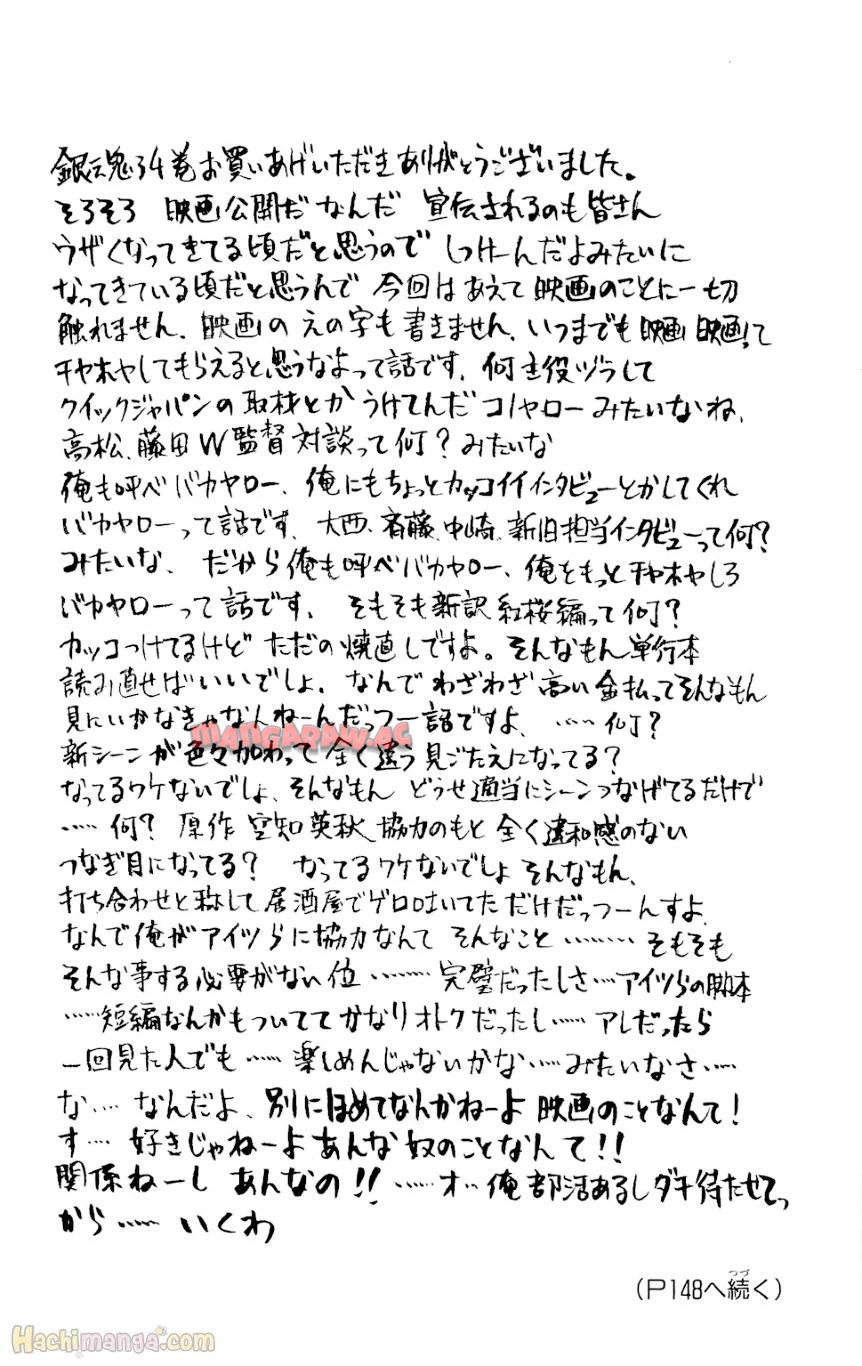 銀魂34巻お買いあげいただきありがとうございました。
そろそろ 映画公開だなんだ 宣伝されるのも皆さん
ウザくなってきてる頃だと思うので しつけーんだよみたいに
なってきている頃だと思うんで 今回はあえて映画のことに一切
触れません、映画のえの字も書きません、いつまでも映画映画って
チヤホヤしてもらえると思うなよって話です、何主役ヅラして
クイックジャパンの取材とかうけてんだコノヤローみたいなね、
高松、藤田W監督対談って何?みたいな
俺も呼べバカヤロー、俺にもちょっとカッコイイインタビューとかしてくれ
バカヤローって話です、大西、斉藤、中崎、新旧担当インタビューって何?
みたいな、だから俺も呼べバカヤロー、俺をもっとチヤホヤしろ
バカヤローって話です、そもそも新訳紅桜編って何?
カッコつけてるけど ただの焼直しですよ。そんなもん単行本
読み直せばいいでしょ、なんでわざわざ高い金払ってそんなもん
見にいかなきゃなんねーんだっつー話ですよ、……何?
MANGARAW.AC
新シーンが色々加わって全く違う見ごたえになってる?
なってるワケないでしょ、そんなもん どうせ適当にシーンつなげてるだけで
……何? 原作 空知英秋協力のもと 全く違和感のない
つなぎ目になってる? なってるワケないでしょ そんなもん、
打ち合わせと称して居酒屋でゲロ吐いてただけだっつーんすよ、
なんで俺がアイツらに協力なんて そんなこと………そもそも
そんな事する必要がない位………完璧だったしさ…アイツらの脚本
……短編なんかもついててかなりオトクだったし……アレだったら
一回見た人でも……楽しめんじゃないかな……みたいなさ……
な… なんだよ、別にほめてなんかねーよ 映画のことなんて!
す… 好きじゃねーよあんな奴のことなんて!!
関係ねーし あんなの!! ……オ… 俺部活あるしダチ待たせてっ
から…… いくわ
(P148へ続く)
つづ
Hachimanga.com